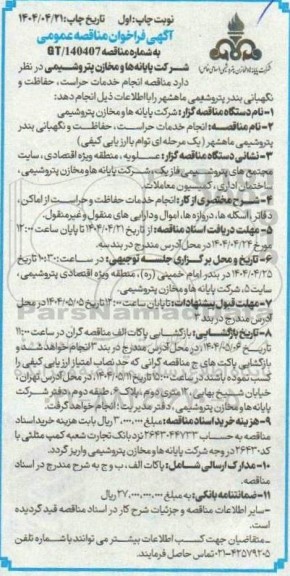 نوبت چاپ: اول تاریخ چاپ: ۱۴۰۴/۰۴/۲۱
آگهی فراخوان مناقصه عمومی
به شماره مناقصه GT/140407
شرکت پایانه‌ها و مخازن پتروشیمی در نظر
دارد مناقصه انجام خدمات حراست، حفاظت و
نگهبانی بندر پتروشیمی ماهشهر را با اطلاعات ذیل انجام دهد:
۱- نام دستگاه مناقصه گزار: شرکت پایانه ها و مخازن پتروشیمی
۲- نام مناقصه: انجام خدمات حراست، حفاظت و نگهبانی بندر
پتروشیمی ماهشهر (یک مرحله ای توام با ارزیابی کیفی)
۳- نشانی دستگاه مناقصه گزار: عسلویه، منطقه ویژه اقتصادی، سایت
مجتمع های پتروشیمی فاز یک، شرکت پایانه ها و مخازن پتروشیمی،
ساختمان اداری، کمیسیون معاملات.
۴- شرح مختصری از کار: انجام خدمات حفاظت و حراست از اماکن،
دفاتر، اسکله ها، دروازه ها، اموال و دارایی های منقول و غیرمنقول.
۵- مهلت دریافت اسناد مناقصه: از تاریخ ۱۴۰۴/۰۴/۲۱ تا پایان ساعت ۱۲:۰۰
مورخ ۱۴۰۴/۰۴/۲۴ در محل آدرس مندرج در بند سه.
۶- تاریخ و محل برگزاری جلسه توجیهی: در ساعت ۱۰:۳۰ تاریخ
۱۴۰۴/۰۴/۲۵ در بندر امام خمینی (ره)، منطقه ویژه اقتصادی پتروشیمی،
سایت ۵، شرکت پایانه ها و مخازن پتروشیمی.
۷- مهلت قبول پیشنهادات: تا پایان ساعت ۱۲:۰۰ تاریخ ۱۴۰۴/۰۵/۰۵ در محل
آدرس مندرج در بند ۳
۸- تاریخ بازگشایی: بازگشایی پاکات الف مناقصه گران در ساعت ۱۱:۰۰
تاریخ ۱۴۰۴/۰۵/۰۶ در محل آدرس مندرج در بند ۳ انجام خواهد شد و
بازگشایی پاکت های ج مناقصه گرانی که حد نصاب امتیاز ارزیابی کیفی را
کسب نموده باشند در ساعت تاریخ در محل آدرس تهران،
خیابان شیخ بهایی، طبقه دوم، دفتر شرکت
پایانه ها و مخازن پتروشیمی، دفتر مدیریت؛ انجام خواهد گرفت.
۹- هزینه خرید اسناد مناقصه: به مبلغ ریال بابت هزینه خرید اسناد
مناقصه به حساب نزد بانک تجارت شعبه کمپ مثلثی با
کد ۲۶۴۳۰ در وجه شرکت پایانه ها و مخازن پتروشیمی واریز گردد.
۱۰- مدارک ارسالی شامل: پاکات الف، ب و ج به شرح مندرج در اسناد
مناقصه.
۱۱- ضمانتنامه بانکی: به مبلغ ریال.
- سایر اطلاعات مناقصه و جزئیات شرح کار در اسناد مناقصه قید گردیده
است.
- متقاضیان جهت کسب اطلاعات بیشتر می توانند با شماره تلفن
۰۲۱-۴۲۵۷۹۲۰۵ تماس حاصل فرمایند.